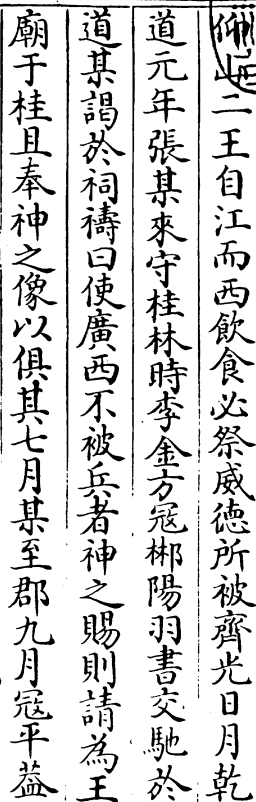 仰山二王自江而西飲食必祭威德所被齊光日月乾
道元年張某來守桂林時李金方冦郴陽羽書交馳於
道某謁於祠禱曰使廣西不被兵者神之賜則請為王
廟于桂且奉神之像以俱其七月某至郡九月冦平葢